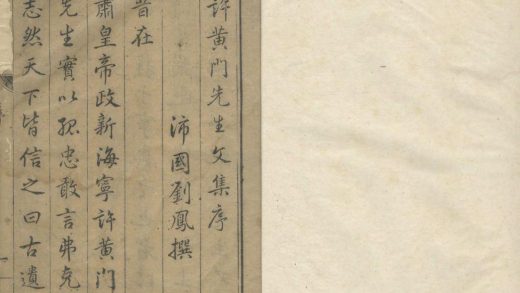 許黄門先生文集序
沛國劉鳳撰
昔在
肅皇帝政新海寧許黄門
先生實以孤忠敢言弗克
志然天下皆信之曰古遺